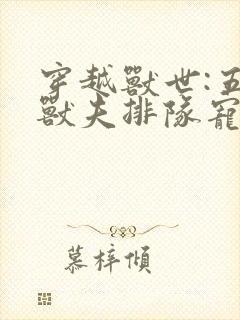 穿越獸世:五
獸夫排隊寵
慕梓傾